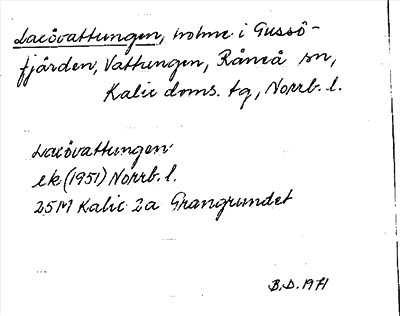 Laxövattungen, holme i Gussö-
fjärden, Vattungen, Råneå sn,
Kalix doms. tg, Norrb. l.
Laxövattungen
ek (1951) Norrb. l.
25M Kalix 2a Grangrundet
B.D. 1971